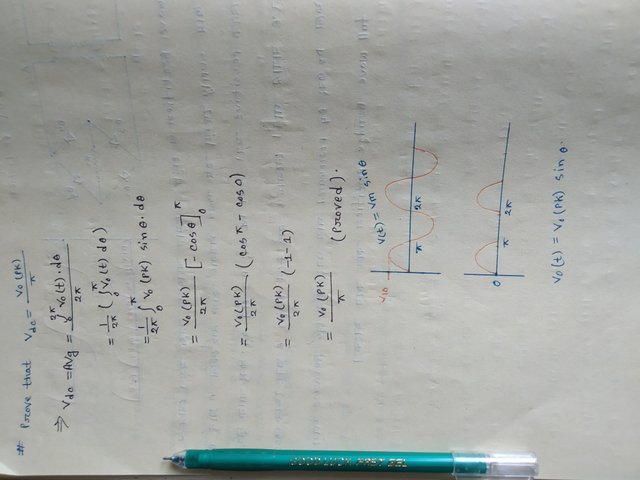 # Prove that Vdc = Vo(PK)/π
⇒ Vdc = Avg = ∫₀^2π Vo(t).dθ / 2π
= 1/2π (∫₀^π Vo(t) dθ)
= 1/2π ∫₀^π Vo(PK) sinθ.dθ
= Vo(PK)/2π [-cosθ]₀^π
= Vo(PK)/2π . (cosπ - cos0)
= Vo(PK)/2π (-1-1)
= Vo(PK)/π (Proved).
V(t) = Vm sinθ
π 2π
0 π 2π
Vo(t) = Vo(PK) sinθ.